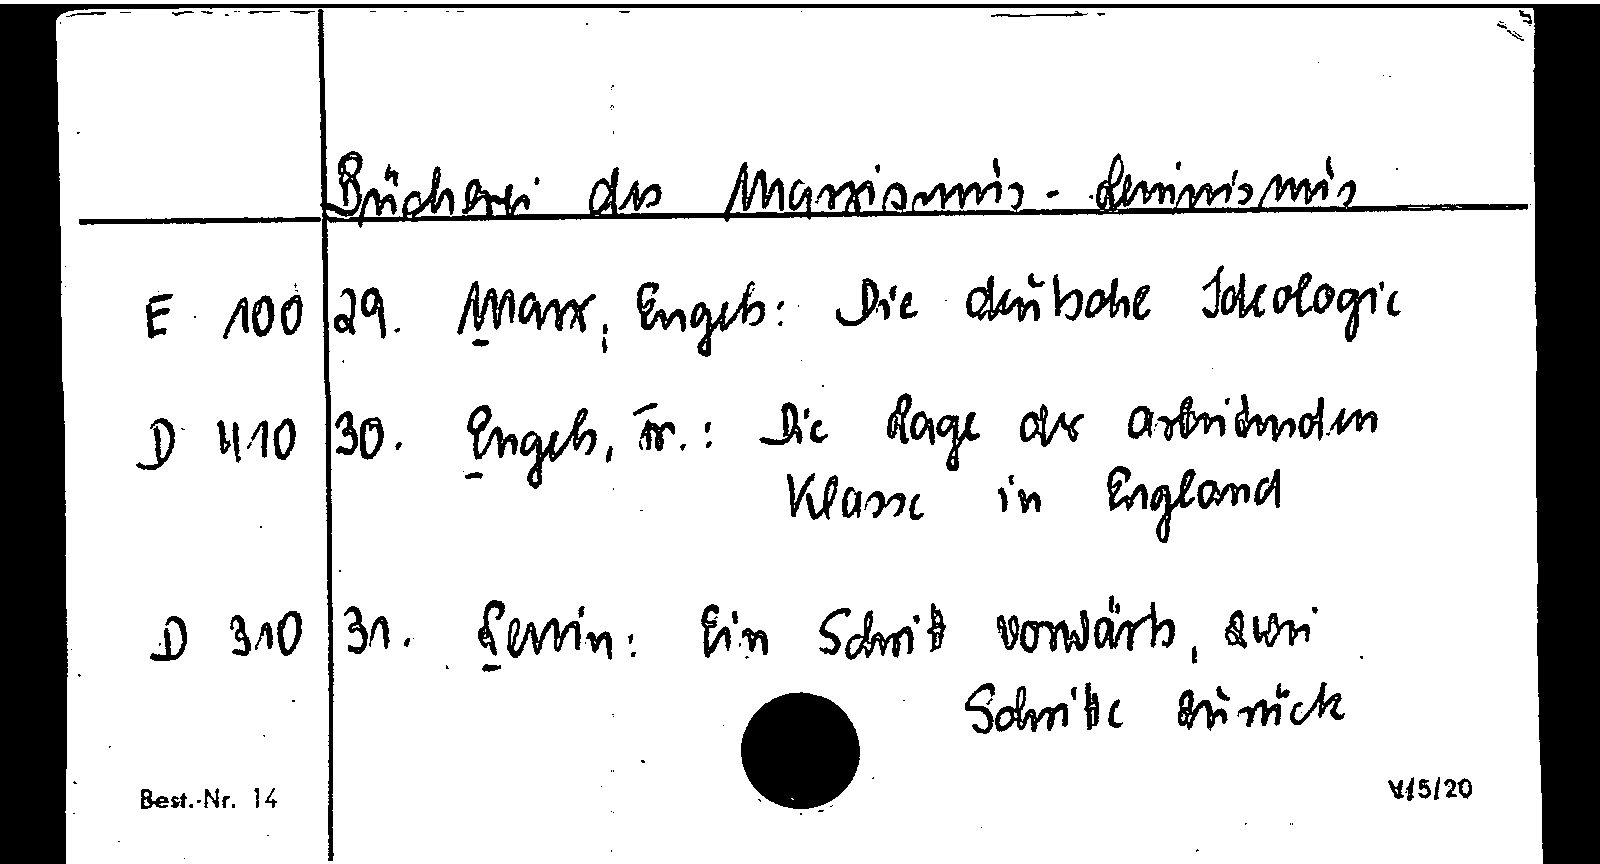 Bücherei des Marxismus-Leninismus
E 100 29. Marx, Engels: Die deutsche Ideologie
D 410 30. Engels, Fr.: Die Lage der arbeitenden
Klasse in England
D 310 31. Lenin: Ein Schritt vorwärts, zwei
Schritte zurück
Best.-Nr. 14 V/5/20